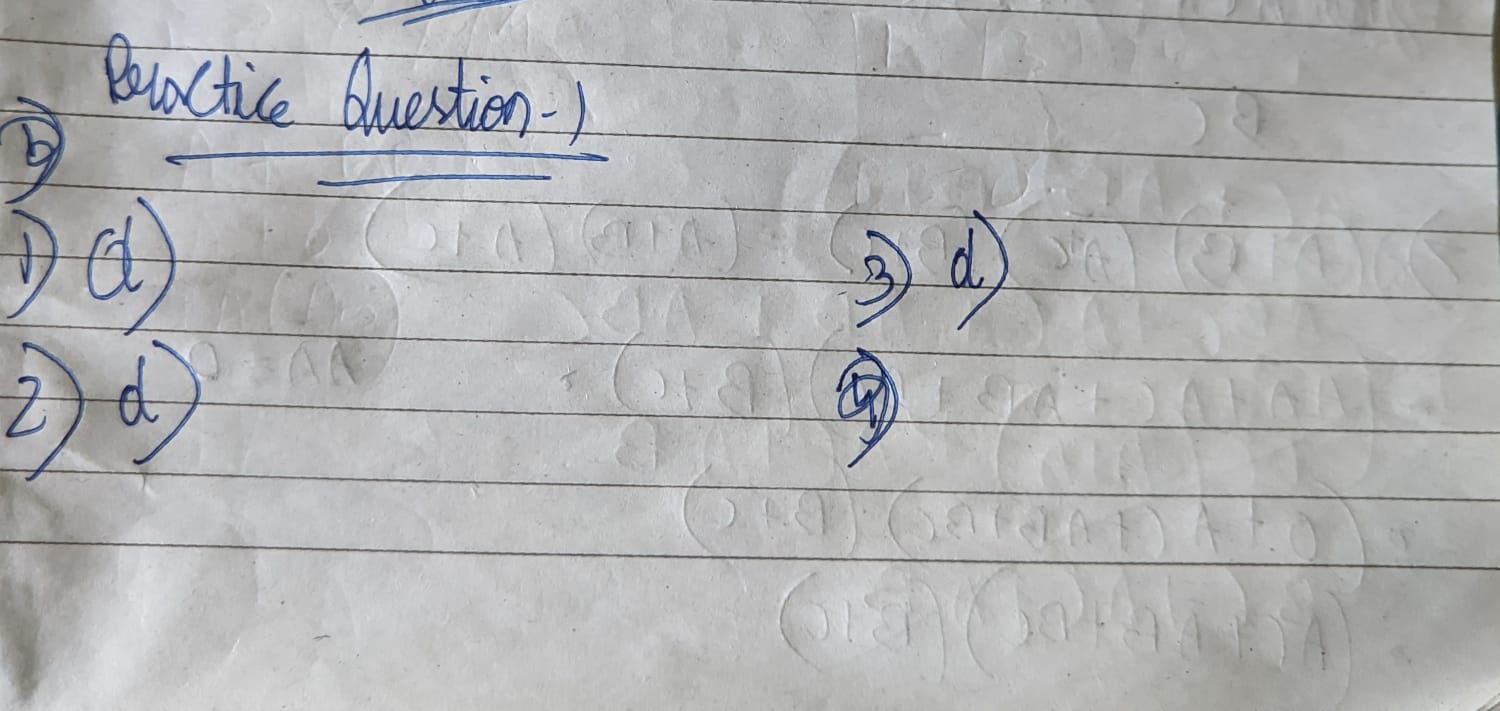 Practice Question-1
b)
1) d)
2) d)
3) d)
4)